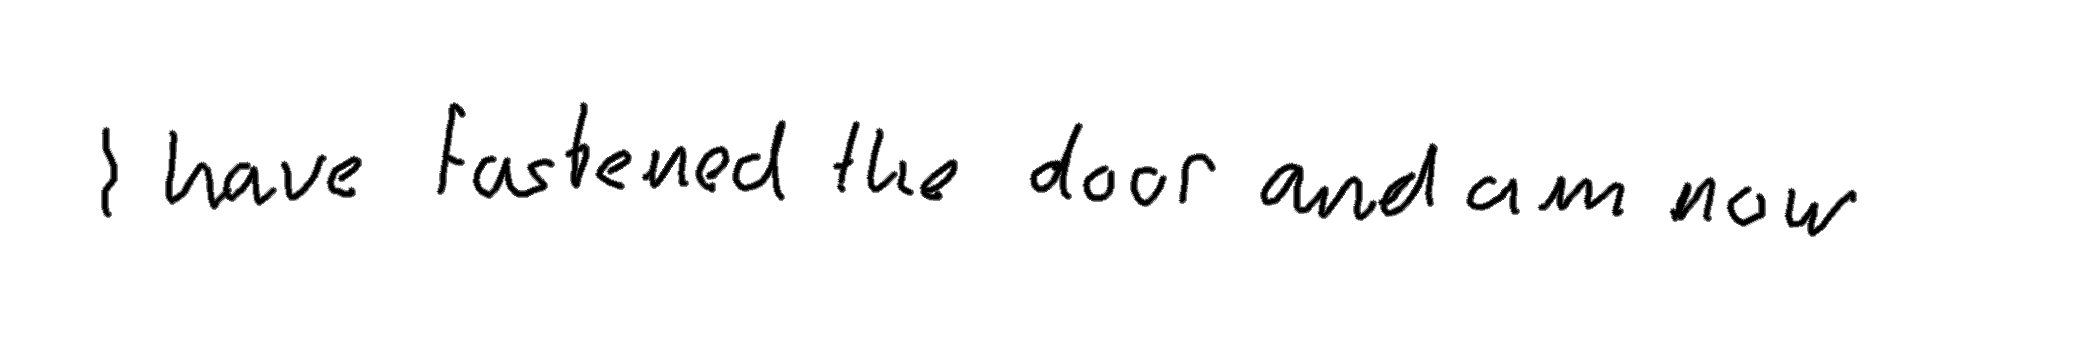 I have fastened the door and am now